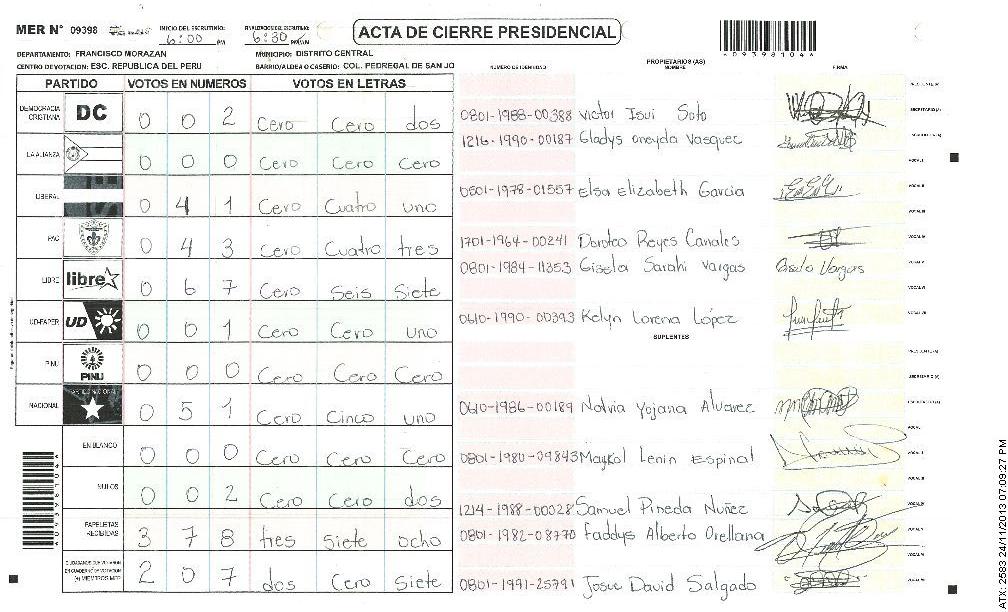 MER N° 09398 INICIO DEL ESCRUTINIO: 6:00 PM FINALIZACION DEL ESCRUTINIO: 6:30 PM ACTA DE CIERRE PRESIDENCIAL
DEPARTAMENTO: FRANCISCO MORAZAN MUNICIPIO: DISTRITO CENTRAL
CENTRO DE VOTACION: ESC. REPUBLICA DEL PERU BARRIO/ALDEA O CASERIO: COL. PEDREGAL DE SAN JO
PARTIDO VOTOS EN NUMEROS VOTOS EN LETRAS
DEMOCRACIA CRISTIANA DC 0 0 2 Cero Cero dos
LA ALIANZA 0 0 0 Cero Cero Cero
LIBERAL 0 4 1 Cero Cuatro uno
PAC 0 4 3 Cero Cuatro tres
LIBRE libre 0 6 7 Cero Seis Siete
UD-FAPER UD 0 0 1 Cero Cero uno
PINU PINU 0 0 0 Cero Cero Cero
NACIONAL 0 5 1 Cero Cinco uno
EN BLANCO 0 0 0 Cero Cero Cero
NULOS 0 0 2 Cero Cero dos
PAPELETAS RECIBIDAS 3 7 8 tres Siete ocho
2 0 7 dos Cero Siete
*09398104*
*09398104*
NUMERO DE IDENTIDAD PROPIETARIOS (AS) NOMBRE FIRMA
0801-1988-00388 Victor Isui Soto
1216-1990-00187 Gladys oneyda Vasquez
0801-1978-01557 Elsa Elizabeth Garcia
1701-1964-00241 Doroteo Reyes Canales
0801-1984-11353 Gisela Sarahi Vargas Gisela Vargas
0610-1990-00393 Kelyn Lorena López
SUPLENTES
0610-1986-00189 Nolvia Yojana Alvarez
0801-1980-09843 Maykol Lenin Espinal
1214-1988-00028 Samuel Pineda Nuñez
0801-1982-08770 Faddys Alberto Orellana
0801-1991-25791 Josue David Salgado
ATX: 2583 24/11/2013 07:09:27 PM